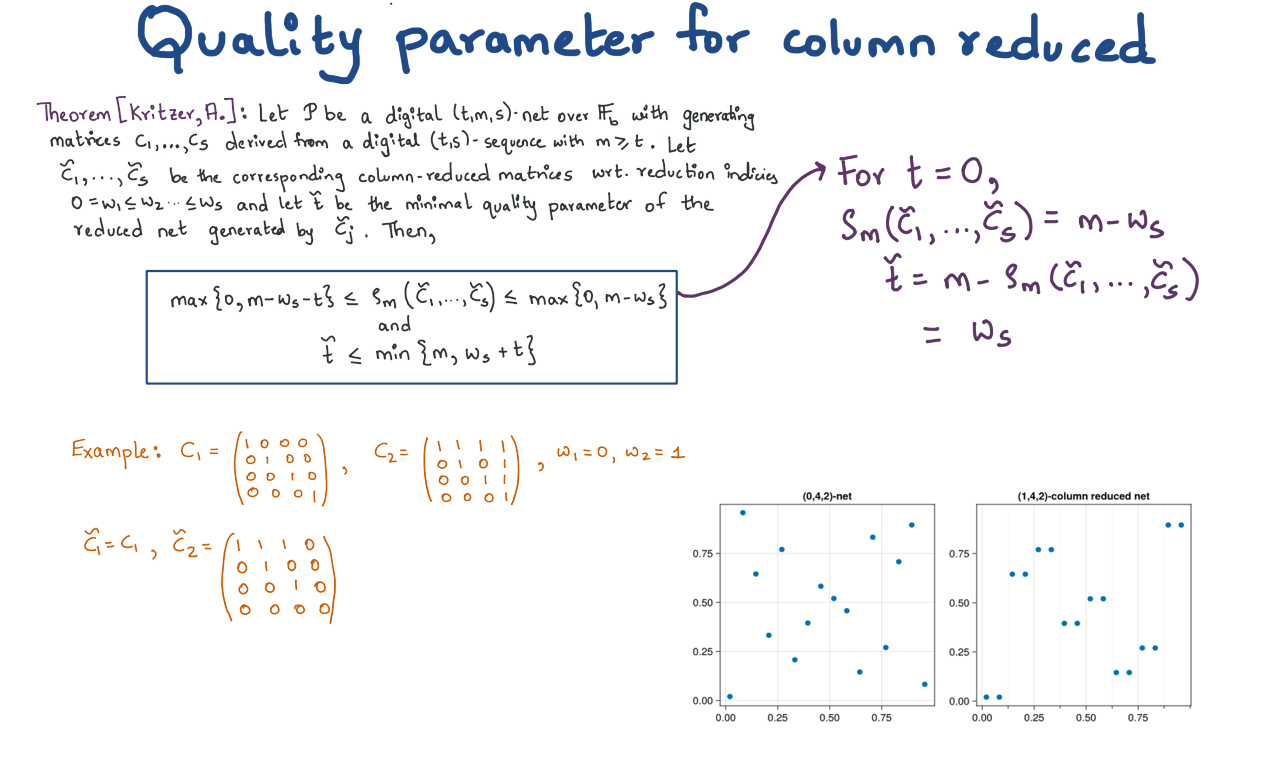 Quality parameter for column reduced
Theorem [Kritzer, A.]: Let P be a digital (t,m,s)-net over 𝔽_b with generating
matrices C₁,...,C_s derived from a digital (t,s)-sequence with m ≥ t. Let
C̆₁,...,C̆_s be the corresponding column-reduced matrices wrt. reduction indicies
0 = w₁ ≤ w₂ ... ≤ w_s and let t̆ be the minimal quality parameter of the
reduced net generated by C̆_j. Then,
max{0, m-w_s-t} ≤ ρ_m(C̆₁,...,C̆_s) ≤ max{0, m-w_s}
and
t̆ ≤ min{m, w_s + t}
For t = 0,
ρ_m(C̆₁,...,C̆_s) = m - w_s
t̆ = m - ρ_m(C̆₁,...,C̆_s)
= w_s
Example: C₁ = (1 0 0 0
0 1 0 0
0 0 1 0
0 0 0 1), C₂ = (1 1 1 1
0 1 0 1
0 0 1 1
0 0 0 1), w₁ = 0, w₂ = 1
C̆₁ = C₁, C̆₂ = (1 1 1 0
0 1 0 0
0 0 1 0
0 0 0 0)
(0,4,2)-net
0.75
0.50
0.25
0.00
0.00 0.25 0.50 0.75
(1,4,2)-column reduced net
0.75
0.50
0.25
0.00
0.00 0.25 0.50 0.75